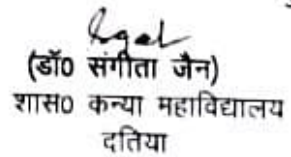 (डॉ0 संगीता जैन)
शास0 कन्या महाविद्यालय
दतिया